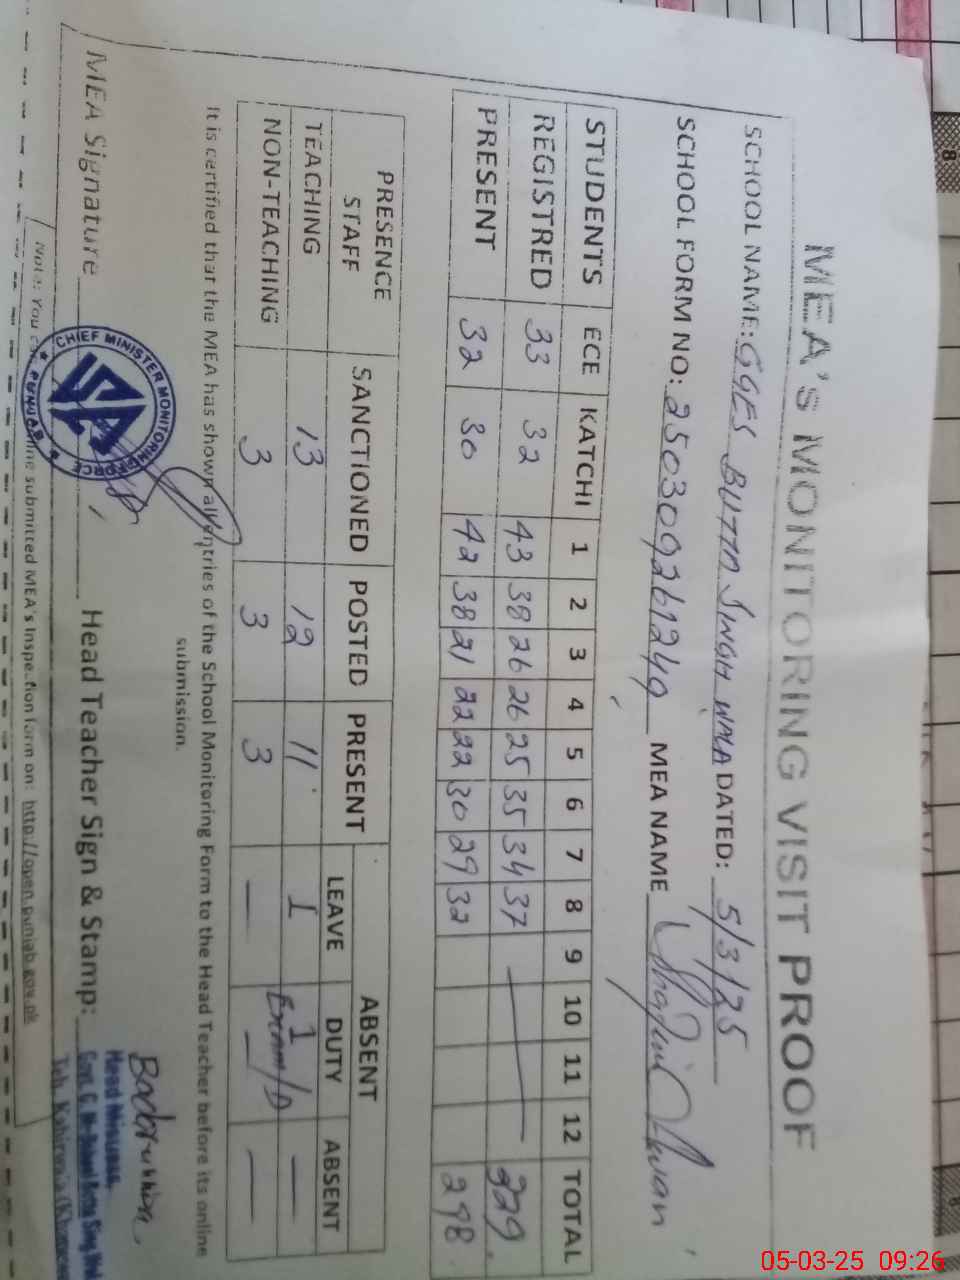 MEA'S MONITORING VISIT PROOF
SCHOOL NAME: GGES BUTTA SINGH WALA DATED: 5/3/25
SCHOOL FORM NO: 250309261249 MEA NAME Awan
STUDENTS ECE KATCHI 1 2 3 4 5 6 7 8 9 10 11 12 TOTAL
REGISTRED 33 32 43 38 26 26 25 35 34 37 — 329
PRESENT 32 30 42 38 21 22 22 30 29 32 298
PRESENCE STAFF SANCTIONED POSTED PRESENT ABSENT
LEAVE DUTY ABSENT
TEACHING 13 12 11 1 1 Exam/D —
NON-TEACHING 3 3 3 — — —
It is certified that the MEA has shown all entries of the School Monitoring Form to the Head Teacher before its online
submission.
MEA Signature Head Teacher Sign & Stamp:
CHIEF MINISTER MONITORING FORCE
PUNJAB
Head Mistress
Govt. G.
Note: You can online submitted MEA's Inspection form on: http://open.punjab.gov.pk
8
8
05-03-25 09:26